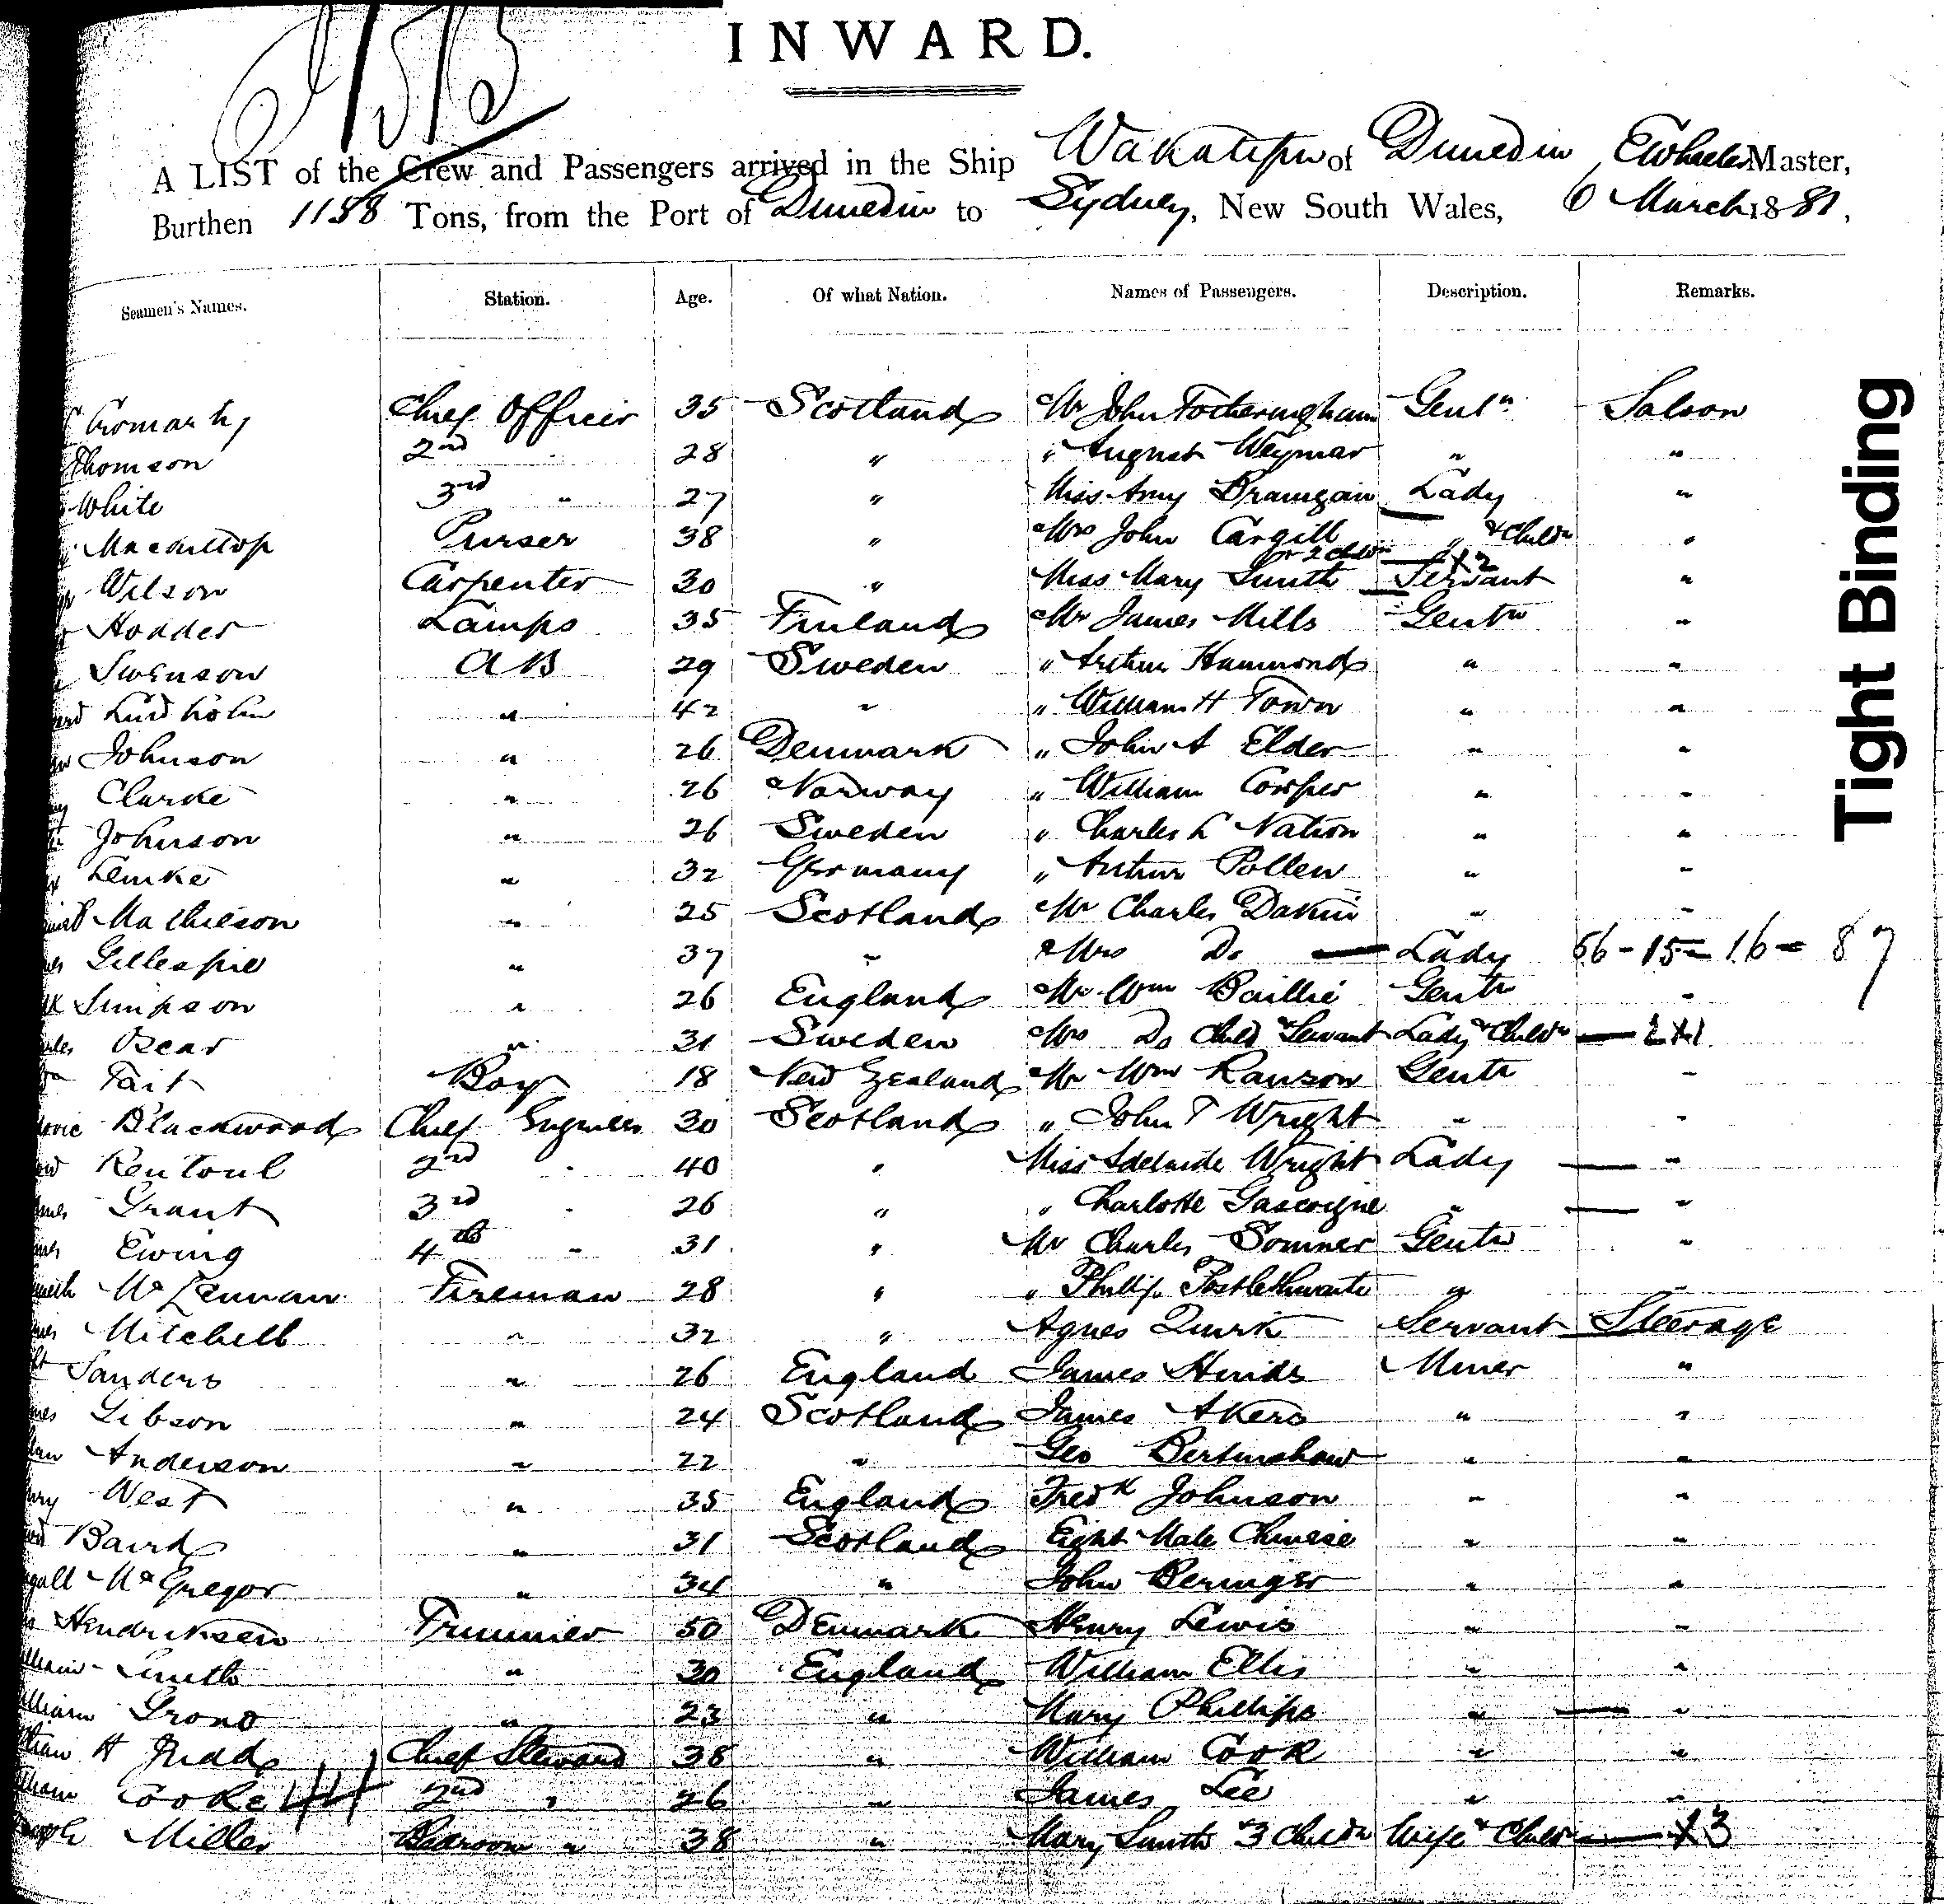 INWARD.
A LIST of the Crew and Passengers arrived in the Ship Wakatipu of Dunedin, E Wheeler Master,
Burthen 1158 Tons, from the Port of Dunedin to Sydney, New South Wales, 6 March 1881.
Seamen's Names. Station. Age. Of what Nation. Names of Passengers. Description. Remarks.
Cromarty Chief Officer 35 Scotland Mr John Fotheringham Gentn Saloon
Thomson 2nd 28 " " August Weymar " "
White 3rd " 27 " Miss Amy Branigan Lady "
Purser 38 " Mrs John Cargill " & Childn "
or 2 childn x2
Wilson Carpenter 30 " Miss Mary Smith Servant "
Hodder Lamps 35 Finland Mr James Mills Gentn "
Swenson AB 29 Sweden " Arthur Hammond " "
Lindholm " 42 " " William H Town " "
Johnson " 26 Denmark " John A Elder " "
Clarke " 26 Norway " William Cowper " "
Johnson " 26 Sweden " Charles L Nation " "
Lemke " 32 Germany " Arthur Pollen " "
Mathieson " 25 Scotland Mr Charles Dakin " "
Gillespie " 37 " Mrs Do Lady 56 - 15 - 16 = 87
Simpson " 26 England Mr Wm Baillie Gentn "
Oscar " 31 Sweden Mrs Do Child & Servant Lady & Childn
Tait Boy 18 New Zealand Mr Wm Ranson Gentn "
Blackwood Chief Engineer 30 Scotland " John T Wright " "
Rentoul 2nd " 40 " Miss Adelaide Wright Lady "
Grant 3rd " 26 " " Charlotte Gascoigne " "
Ewing 4th " 31 " Mr Charles Sommer Gentn "
McLennan Fireman 28 " " Phillip Postlethwaite " "
Mitchell " 32 " Agnes Quirk Servant Steerage
Sanders " 26 England James Hinds Miner "
Gibson " 24 Scotland James Akers " "
Anderson " 22 " Geo Bertinshaw " "
West " 35 England Fredk Johnson " "
Baird " 31 Scotland Eight Male Chinese " "
McGregor " 34 " John Beringer " "
Hendriksen Trimmer 50 Denmark Henry Lewis " "
Smith " 30 England William Ellis " "
Grono " 23 " Mary Phillips " "
H Judd Chief Steward 38 " William Cook " "
Cooke 44 2nd " 26 " James Lee " "
Miller Bedroom " 38 " Mary Smith & 3 Childn Wife & Childn x3
Tight Binding